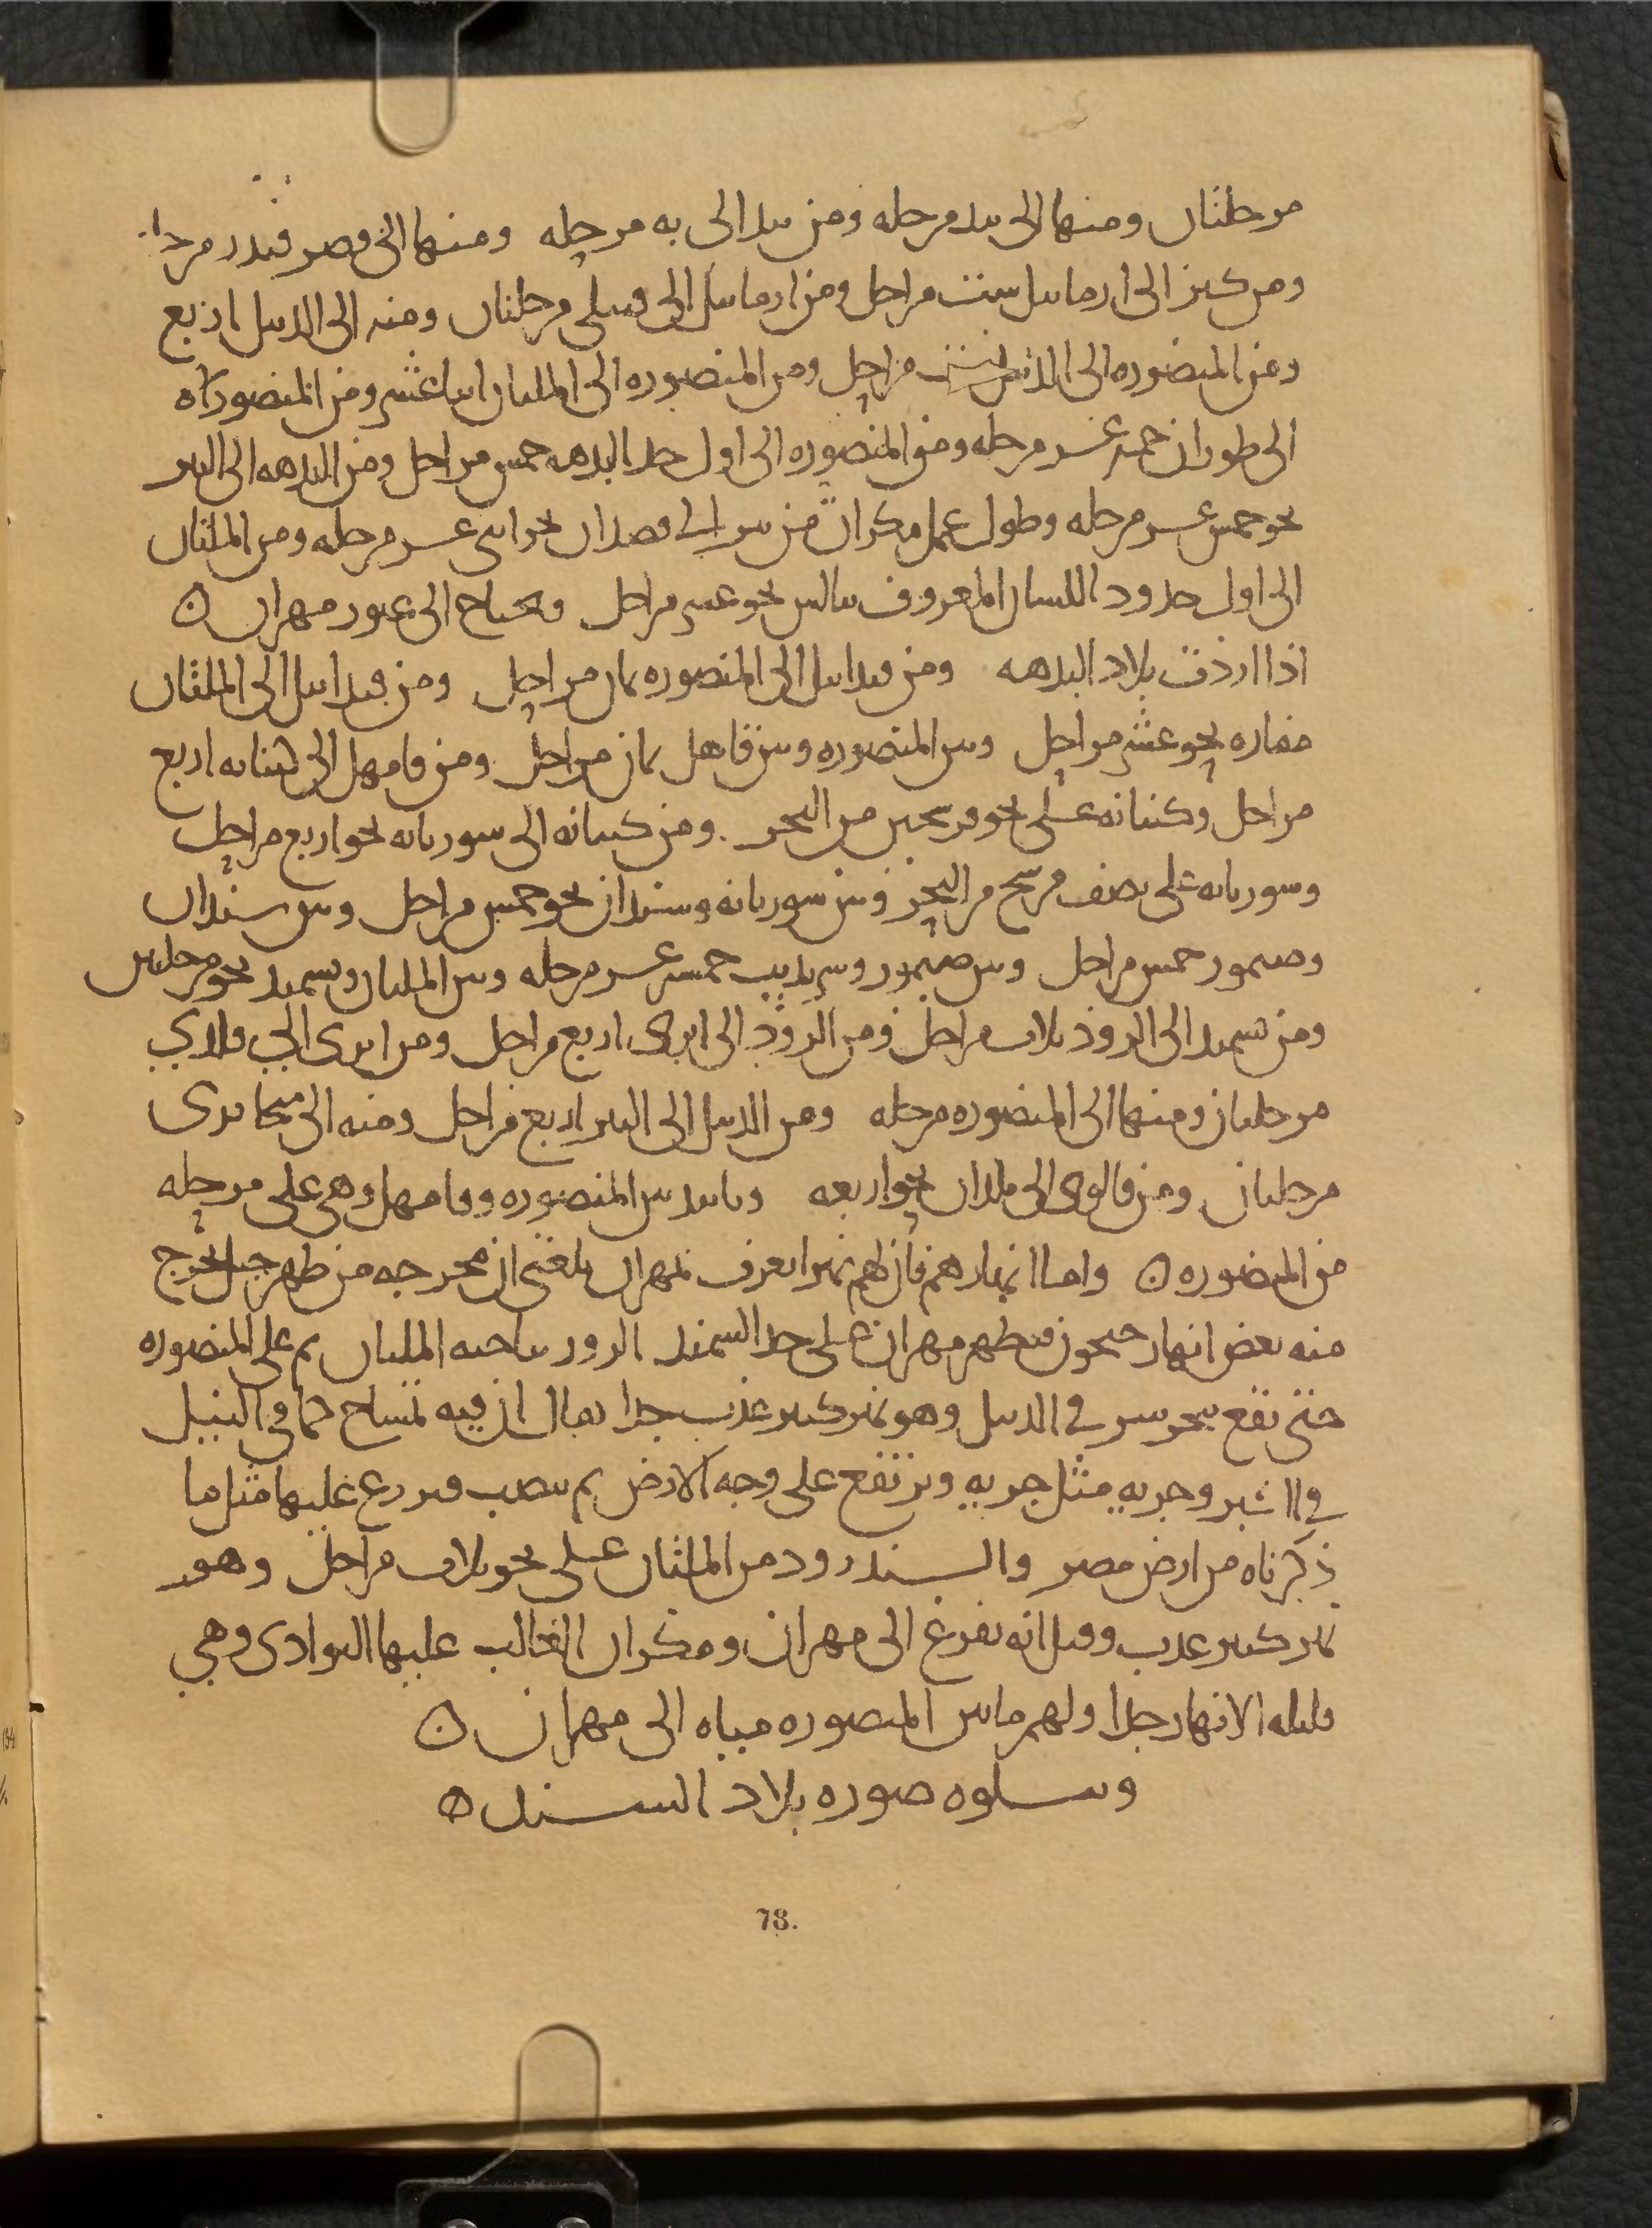 مرحلتان ومنها الى بند مرحله ومن بند الى به مرحله ومنها الى قصر قند ر مرحله
ومن كيز الى ارمابيل ست مراحل ومن ارمابيل الى قنبلى مرحلتان ومنه الى الدبيل اربع
ومن المنصوره الى الدبيل ست مراحل ومن المنصوره الى الملتان اثنا عشر ومن المنصوره
الى طوران خمسه عشر مرحله ومن المنصوره الى اول حد البدهه خمس مراحل ومن البدهه الى التيز
نحو خمس عشر مرحله وطول عمل مكران من تيز الى قصدان نحو اثنى عشر مرحله ومن الملتان
الى اول حدود اللسان المعروف ببالس نحو عشر مراحل وتحتاج الى عبور مهران ه
اذا اردت بلاد البدهه ومن قندابيل الى المنصوره ثمان مراحل ومن قندابيل الى الملتان
مفازه نحو عشر مراحل وبين المنصوره وبين قامهل ثمان مراحل ومن قامهل الى كنبانه اربع
مراحل وكنبانه على نحو فرسخين من البحر ومن كنبانه الى سوربانه نحو اربع مراحل
وسوربانه على نصف فرسخ من البحر وبين سوربانه وسندان نحو خمس مراحل وبين سندان
وصيمور خمس مراحل وبين صيمور وسرنديب خمسه عشر مرحله وبين الملتان وبسمند نحو مرحلتين
ومن بسمند الى الروذ ثلاث مراحل ومن الروذ الى انرى اربع مراحل ومن انرى الى قلرى
مرحلتان ومنها الى المنصوره مرحله ومن الدبيل الى النيرون اربع مراحل ومنه الى منجابرى
مرحلتان ومن قالوى الى بلدان نحو اربعه وبانيه بين المنصوره وقامهل وهى على مرحله
من المنصوره ه واما انهارهم فان لهم نهرا يعرف بمهران بلغنى ان مخرجه من ظهر جبل يخرج
منه بعض انهار جيحون فيظهر مهران على حد السمند الرور بناحيه الملتان ثم على المنصوره
حتى تقع ببحر شرقى الدبيل وهو نهر كبير عذب جدا يقال ان فيه تماسح كما فى النيل
فى الكبر وجريه مثل جريه ويرتفع على وجه الارض ثم ينصب فيزرع عليها مثل ما
ذكرناه من ارض مصر والسندرود من الملتان على نحو ثلاث مراحل وهو
نهر كبير عذب وقيل انه يفرغ الى مهران ومكران الغالب عليها البوادى وهى
قليله الانهار جدا ولهم ما بين المنصوره مياه الى مهران ه
ويتلوه صوره بلاد السند ه
78.